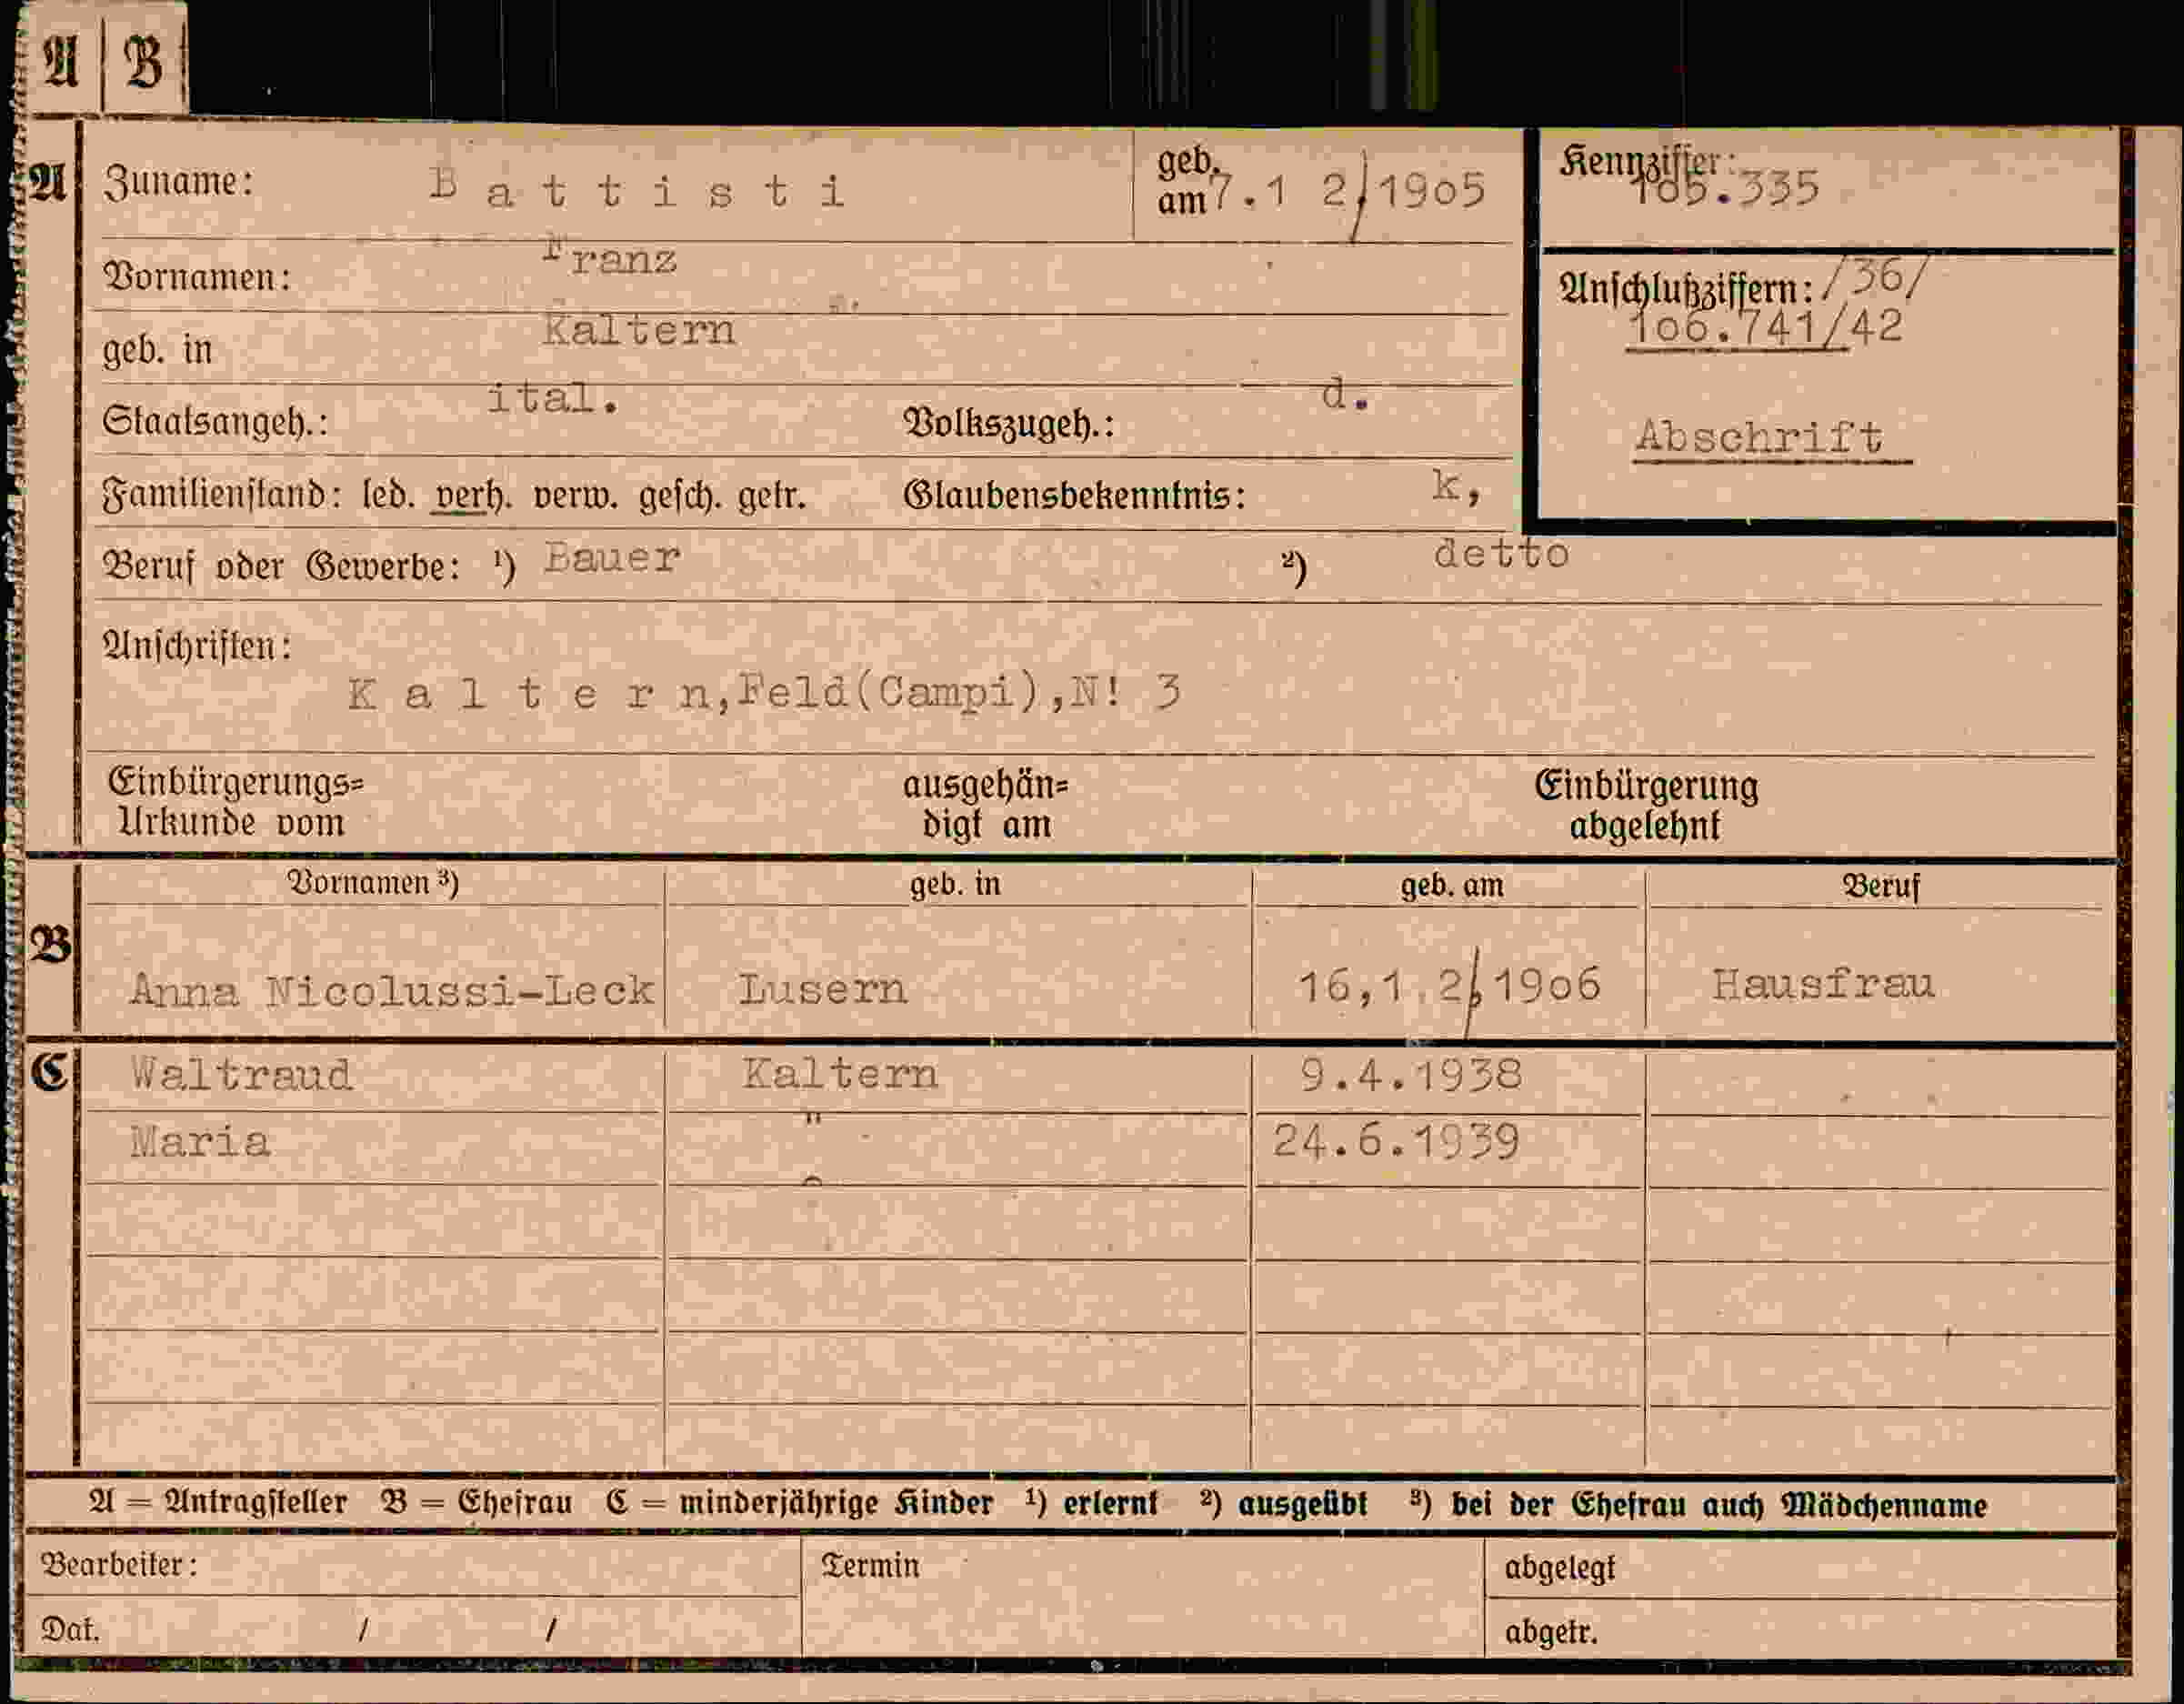 A B
A Zuname: Battisti geb. am 7.12.1905 Kennziffer: 105.335
Vornamen: Franz
geb. in Kaltern
Anschlußziffern: /36/
106.741/42
Staatsangeh.: ital. Volkszugeh.: d.
Abschrift
Familienstand: led. verh. verw. gesch. getr. Glaubensbekenntnis: k,
Beruf oder Gewerbe: ¹) Bauer ²) detto
Anschriften:
Kaltern,Feld(Campi),N! 3
Einbürgerungs= ausgehän= Einbürgerung
Urkunde vom digt am abgelehnt
Vornamen ³) geb. in geb. am Beruf
B
Anna Nicolussi-Leck Lusern 16,1 2.1906 Hausfrau
C Waltraud Kaltern 9.4.1938
Maria " 24.6.1939
A = Antragsteller B = Ehefrau C = minderjährige Kinder ¹) erlernt ²) ausgeübt ³) bei der Ehefrau auch Mädchenname
Bearbeiter: Termin abgelegt
Dat. / / abgetr.